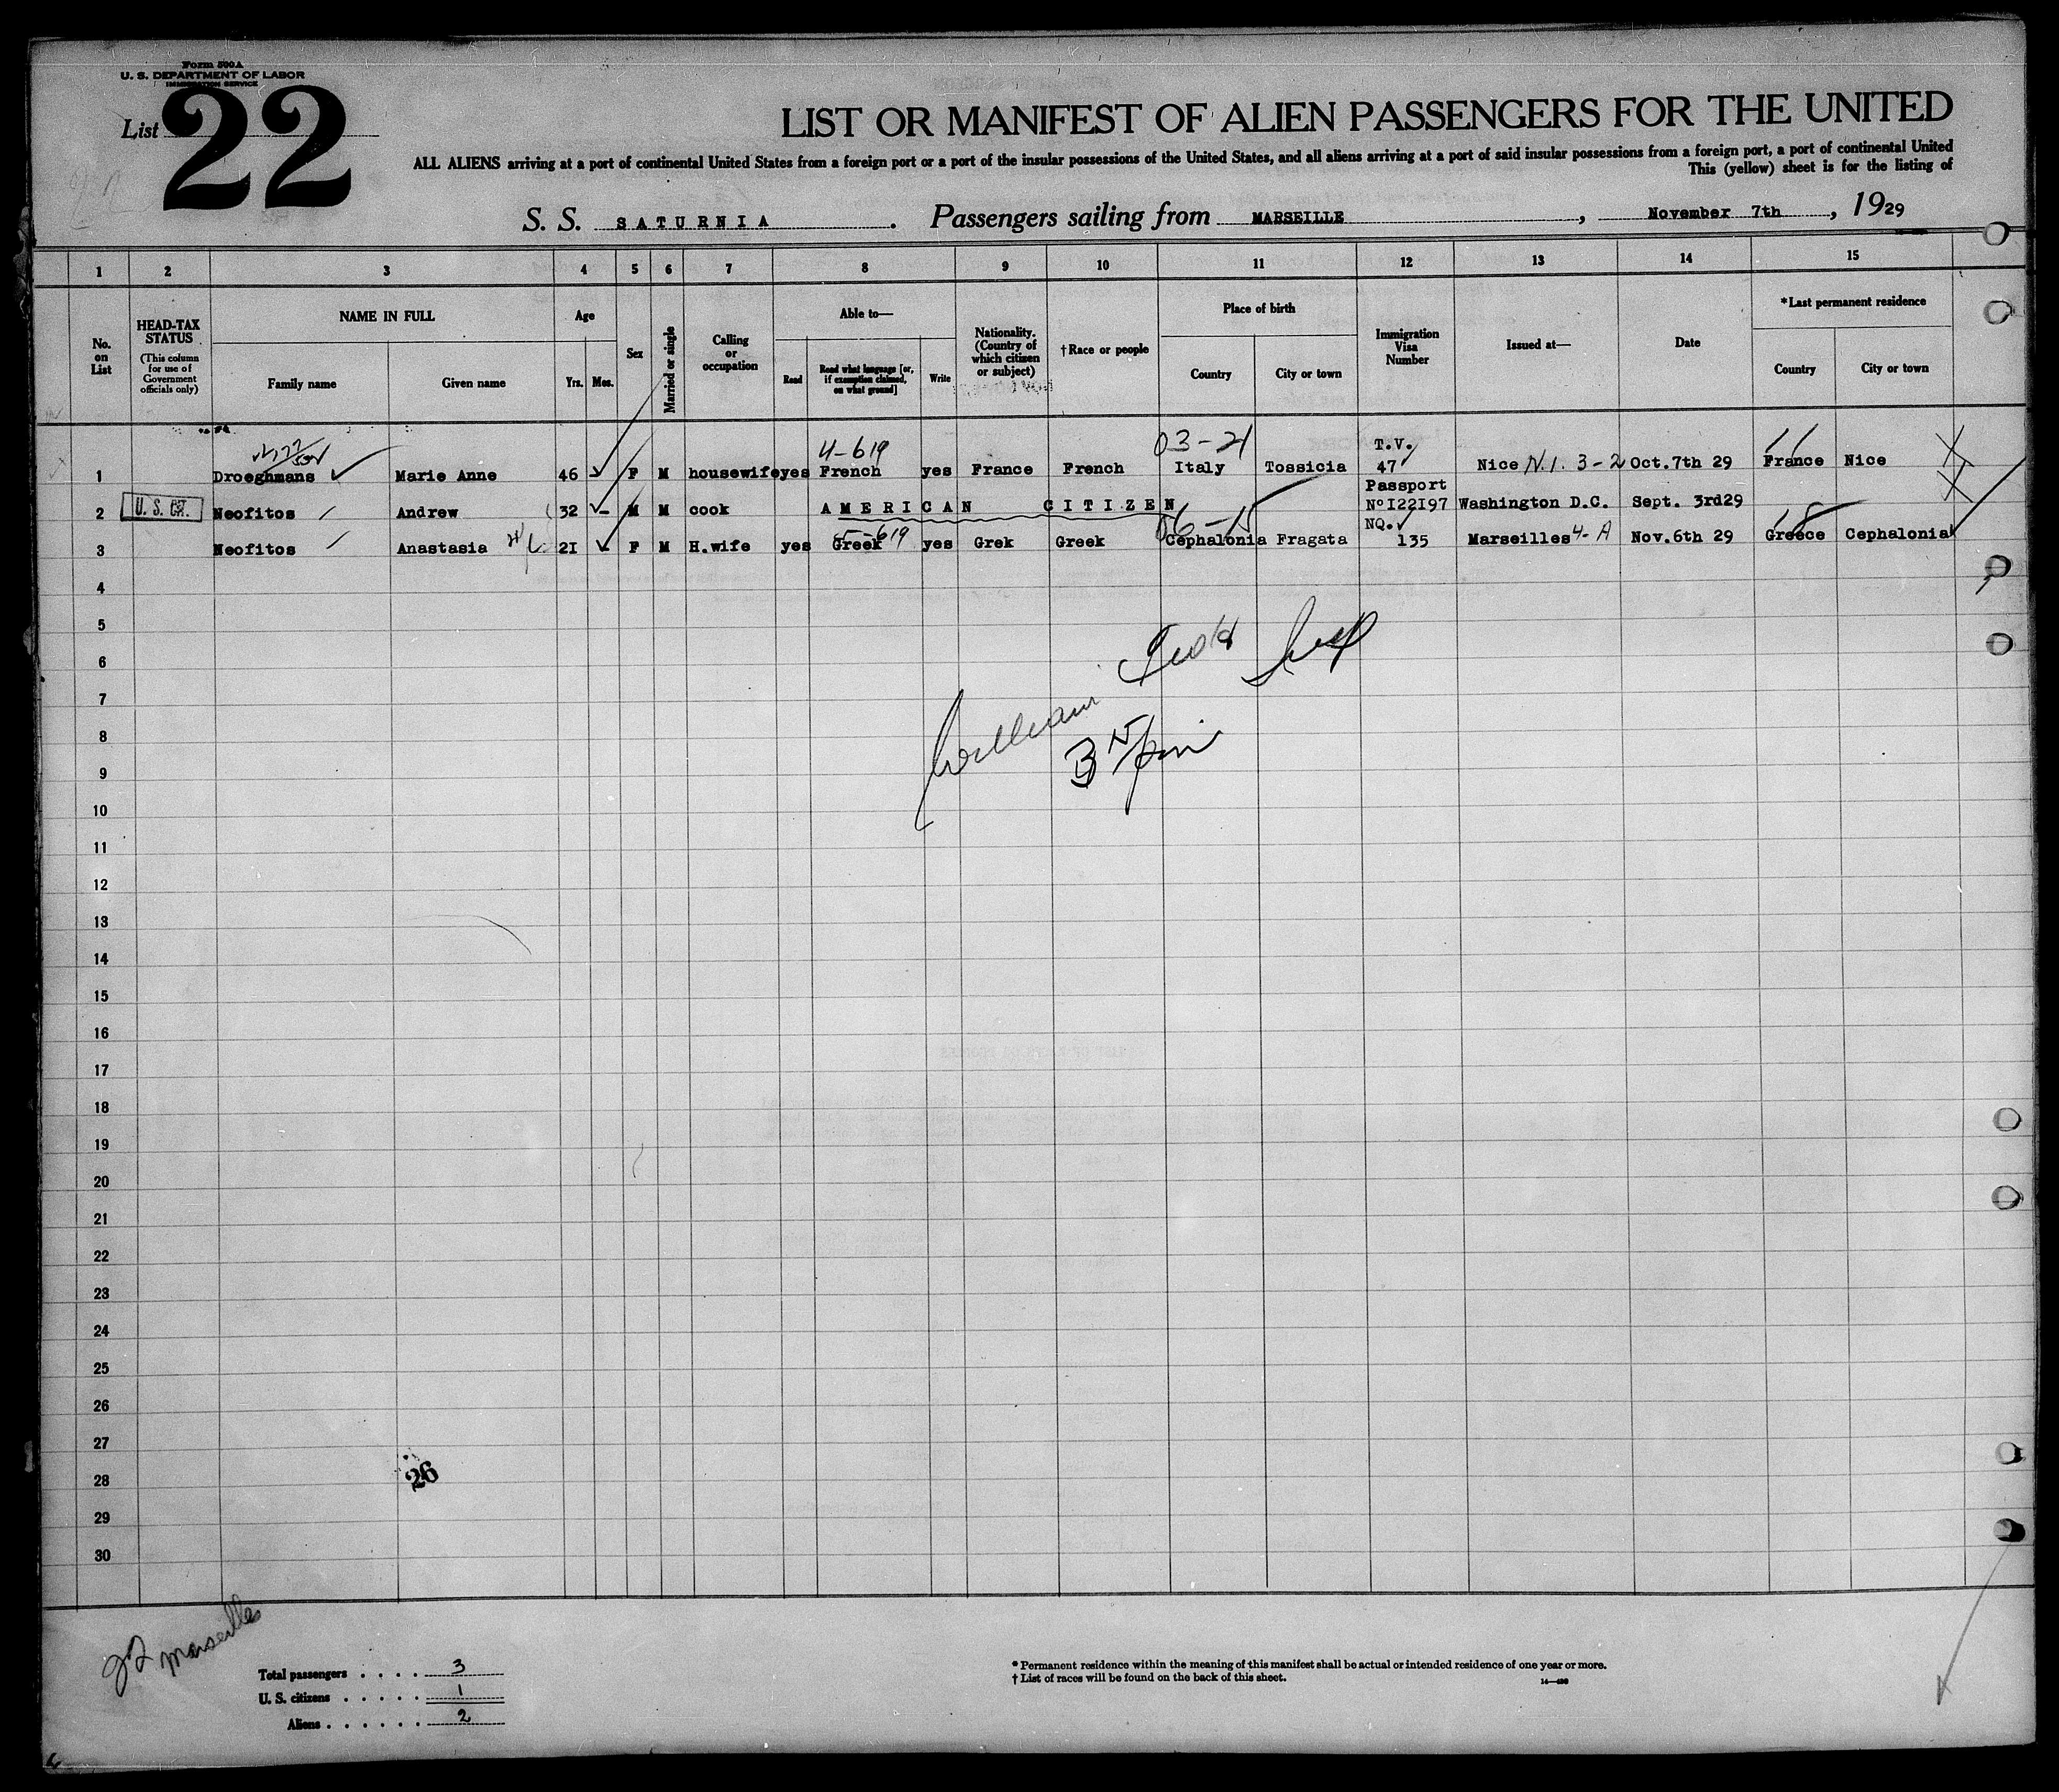 Form 500 A
U. S. DEPARTMENT OF LABOR
IMMIGRATION SERVICE
List 22
LIST OR MANIFEST OF ALIEN PASSENGERS FOR THE UNITED
ALL ALIENS arriving at a port of continental United States from a foreign port or a port of the insular possessions of the United States, and all aliens arriving at a port of said insular possessions from a foreign port, a port of continental United
This (yellow) sheet is for the listing of
S. S. SATURNIA. Passengers sailing from MARSEILLE, November 7th, 1929
1 2 3 4 5 6 7 8 9 10 11 12 13 14 15
No. on List
HEAD-TAX STATUS
(This column for use of Government officials only)
NAME IN FULL
Family name Given name
Age
Yrs. Mos.
Sex
Married or single
Calling or occupation
Able to—
Read Read what language [or, if exemption claimed, on what ground] Write
Nationality. (Country of which citizen or subject)
†Race or people
Place of birth
Country City or town
Immigration Visa Number
Issued at—
Date
*Last permanent residence
Country City or town
4-619 03-21 T.V.
1 Droeghmans Marie Anne 46 F M housewife yes French yes France French Italy Tossicia 47 Nice N.I. 3-2 Oct.7th 29 France Nice
Passport
2 U. S. Neofitos Andrew 32 M M cook AMERICAN CITIZEN No I22I97 Washington D.C. Sept. 3rd29
5-619 06-15 NQ.
3 Neofitos Anastasia 2I F M H.wife yes Greek yes Grek Greek Cephalonia Fragata 135 Marseilles 4-A Nov.6th 29 Greece Cephalonia
4
5
6
7
William
8
3
9
10
11
12
13
14
15
16
17
18
19
20
21
22
23
24
25
26
27
28
26
29
30
Marseille
Total passengers . . . . 3
U. S. citizens . . . . . 1
Aliens . . . . . . 2
* Permanent residence within the meaning of this manifest shall be actual or intended residence of one year or more.
† List of races will be found on the back of this sheet.